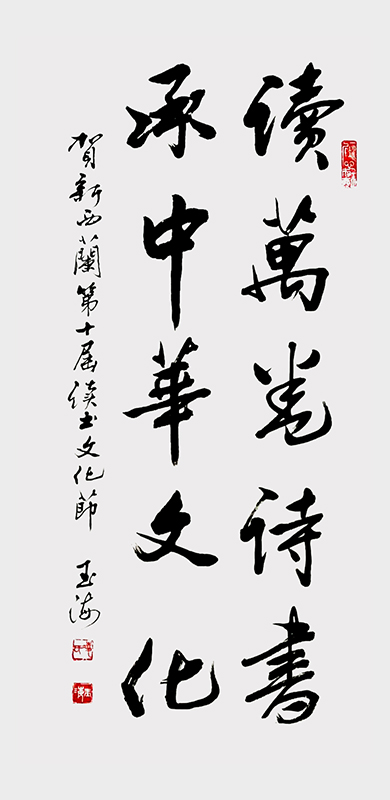 讀萬卷诗書
承中華文化
賀新西蘭第十届读书文化節 玉海